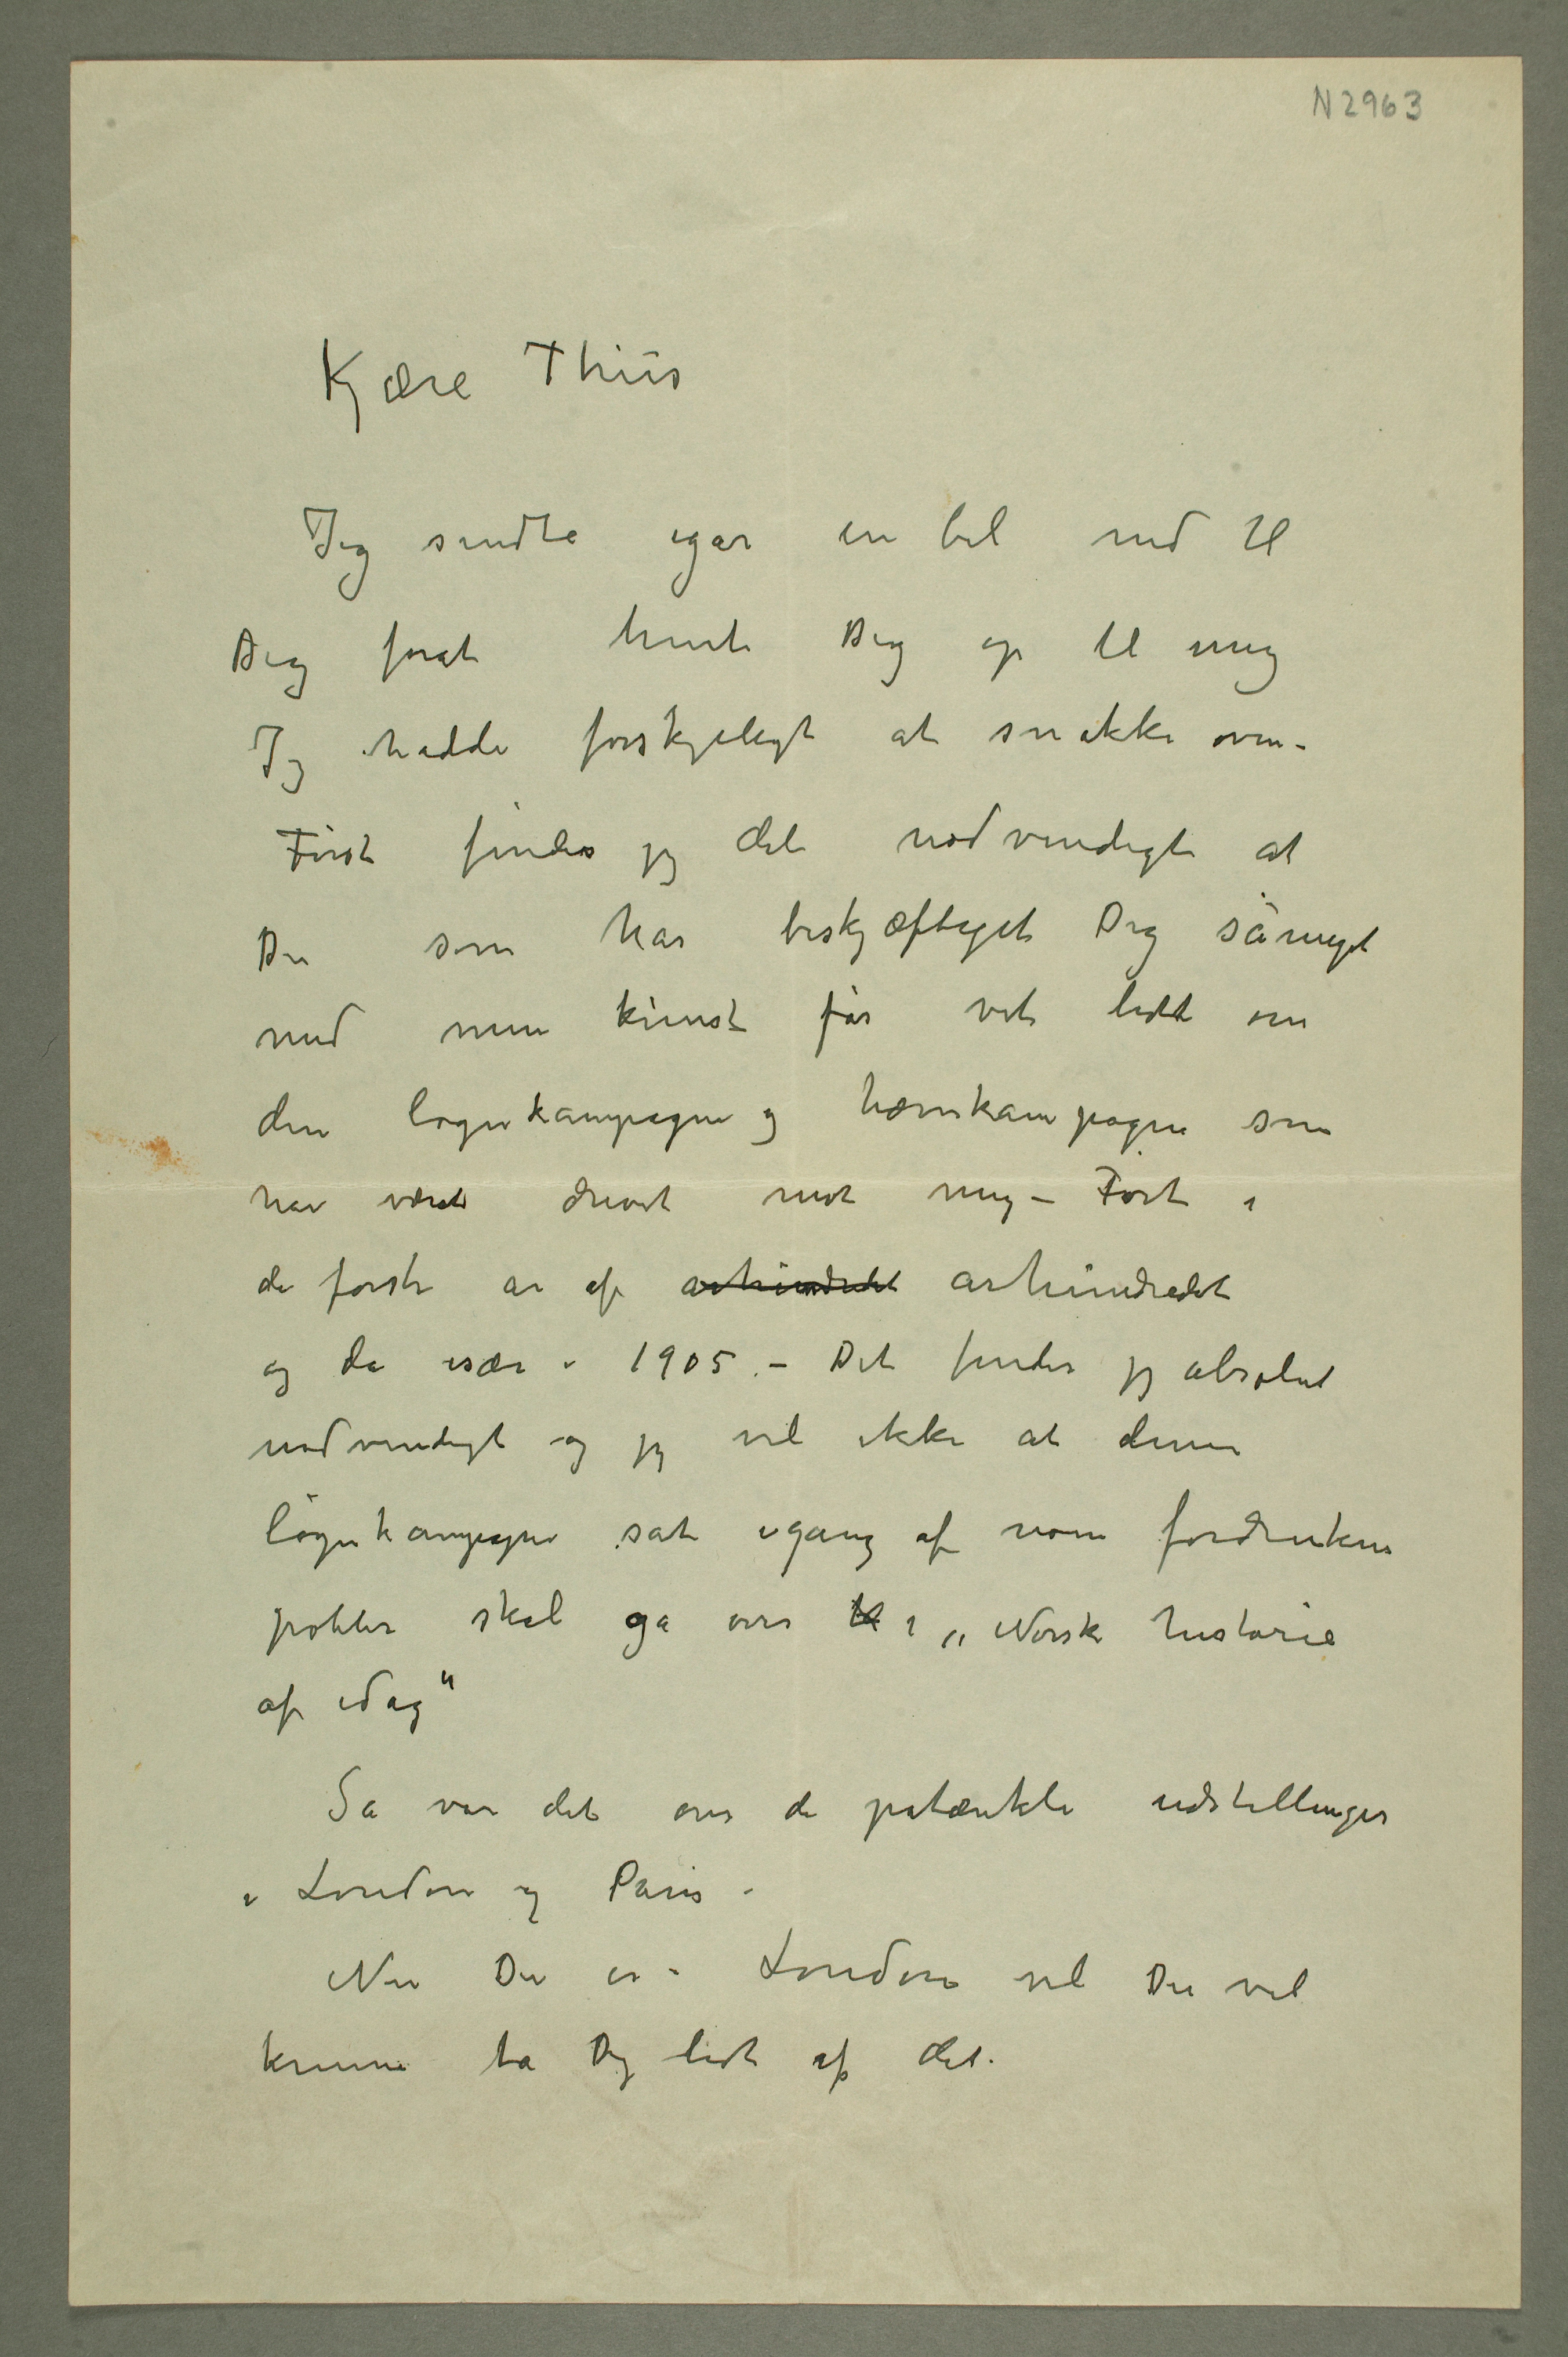 N 2963
Kjære Thiis
Jeg sendte igår en bil ned til
Dig forat hente Dig op til mig
Jeg hadde forskjeligt at snakke om –
Først finder jeg det nødvendigt at
Du som har beskjæftiget Dig såmeget
med min kunst får vite lidt om
den løgnkampagne og hævnkampagne som
har været drevet mot mig – Først i
de første år af århundredet århundredet
og da især i 1905. – Det finder jeg absolut
nødvendigt og jeg vil ikke at denne
løgnkampagne sat igang af nogen fordrukne
pobler skal gå over til i „Norsk historie
af idag"
Så var det om de påtænkte udstillinger
i London og Paris –
Når Du er i London vil Du vel
kunne ta Dig lidt af det.